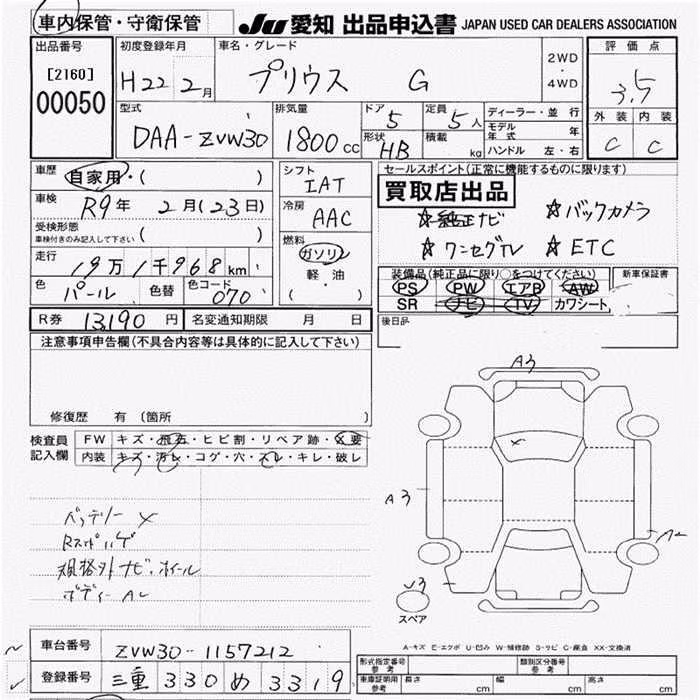 車内保管・守衛保管
JU 愛知 出品申込書 JAPAN USED CAR DEALERS ASSOCIATION
出品番号
[2160]
00050
初度登録年月
H22 2月
車名・グレード
プリウス G
2WD
・
4WD
評価点
3.5
外装 内装
C C
型式
DAA-ZVW30
排気量
1800cc
ドア 5
形状 HB
定員 5人
積載 kg
ディーラー・並行
モデル年式 年
ハンドル 左・右
車歴 自家用・( )
車検 R9年 2月(23日)
受検形態
車検付きのみ記入して下さい ( )
走行 19万1千968km
色 パール 色替 色コード 070
シフト
IAT
冷房
AAC
燃料
ガソリン
軽油
( ・ )
セールスポイント(正常に機能するものに限ります)
買取店出品
☆純正ナビ ☆バックカメラ
☆ワンセグTV ☆ETC
装備品(純正品に限り○をつけてください) 新車保証書
PS PW エアB AW
SR ナビ TV カワシート
後日品
R券 13190円 名変通知期限 月 日
注意事項申告欄(不具合内容等は具体的に記入して下さい)
修復歴 有(箇所 )
検査員記入欄
FW キズ・飛石・ヒビ割・リペア跡・X要
内装 キズ・汚れ・コゲ・穴・スレ・キレ・破レ
バッテリー X
規格外ナビ・ホイール
A3
A3
A2
スペア
A-キズ E-エクボ U-凹み W-補修跡 S-サビ C-腐食 XX-交換済
車台番号 ZVW30-1157212
登録番号 三重 330 め 3319
形式指定番号 参考
類別区分番号 参考
車庫証明用 参考 長さ cm 幅 cm 高さ cm